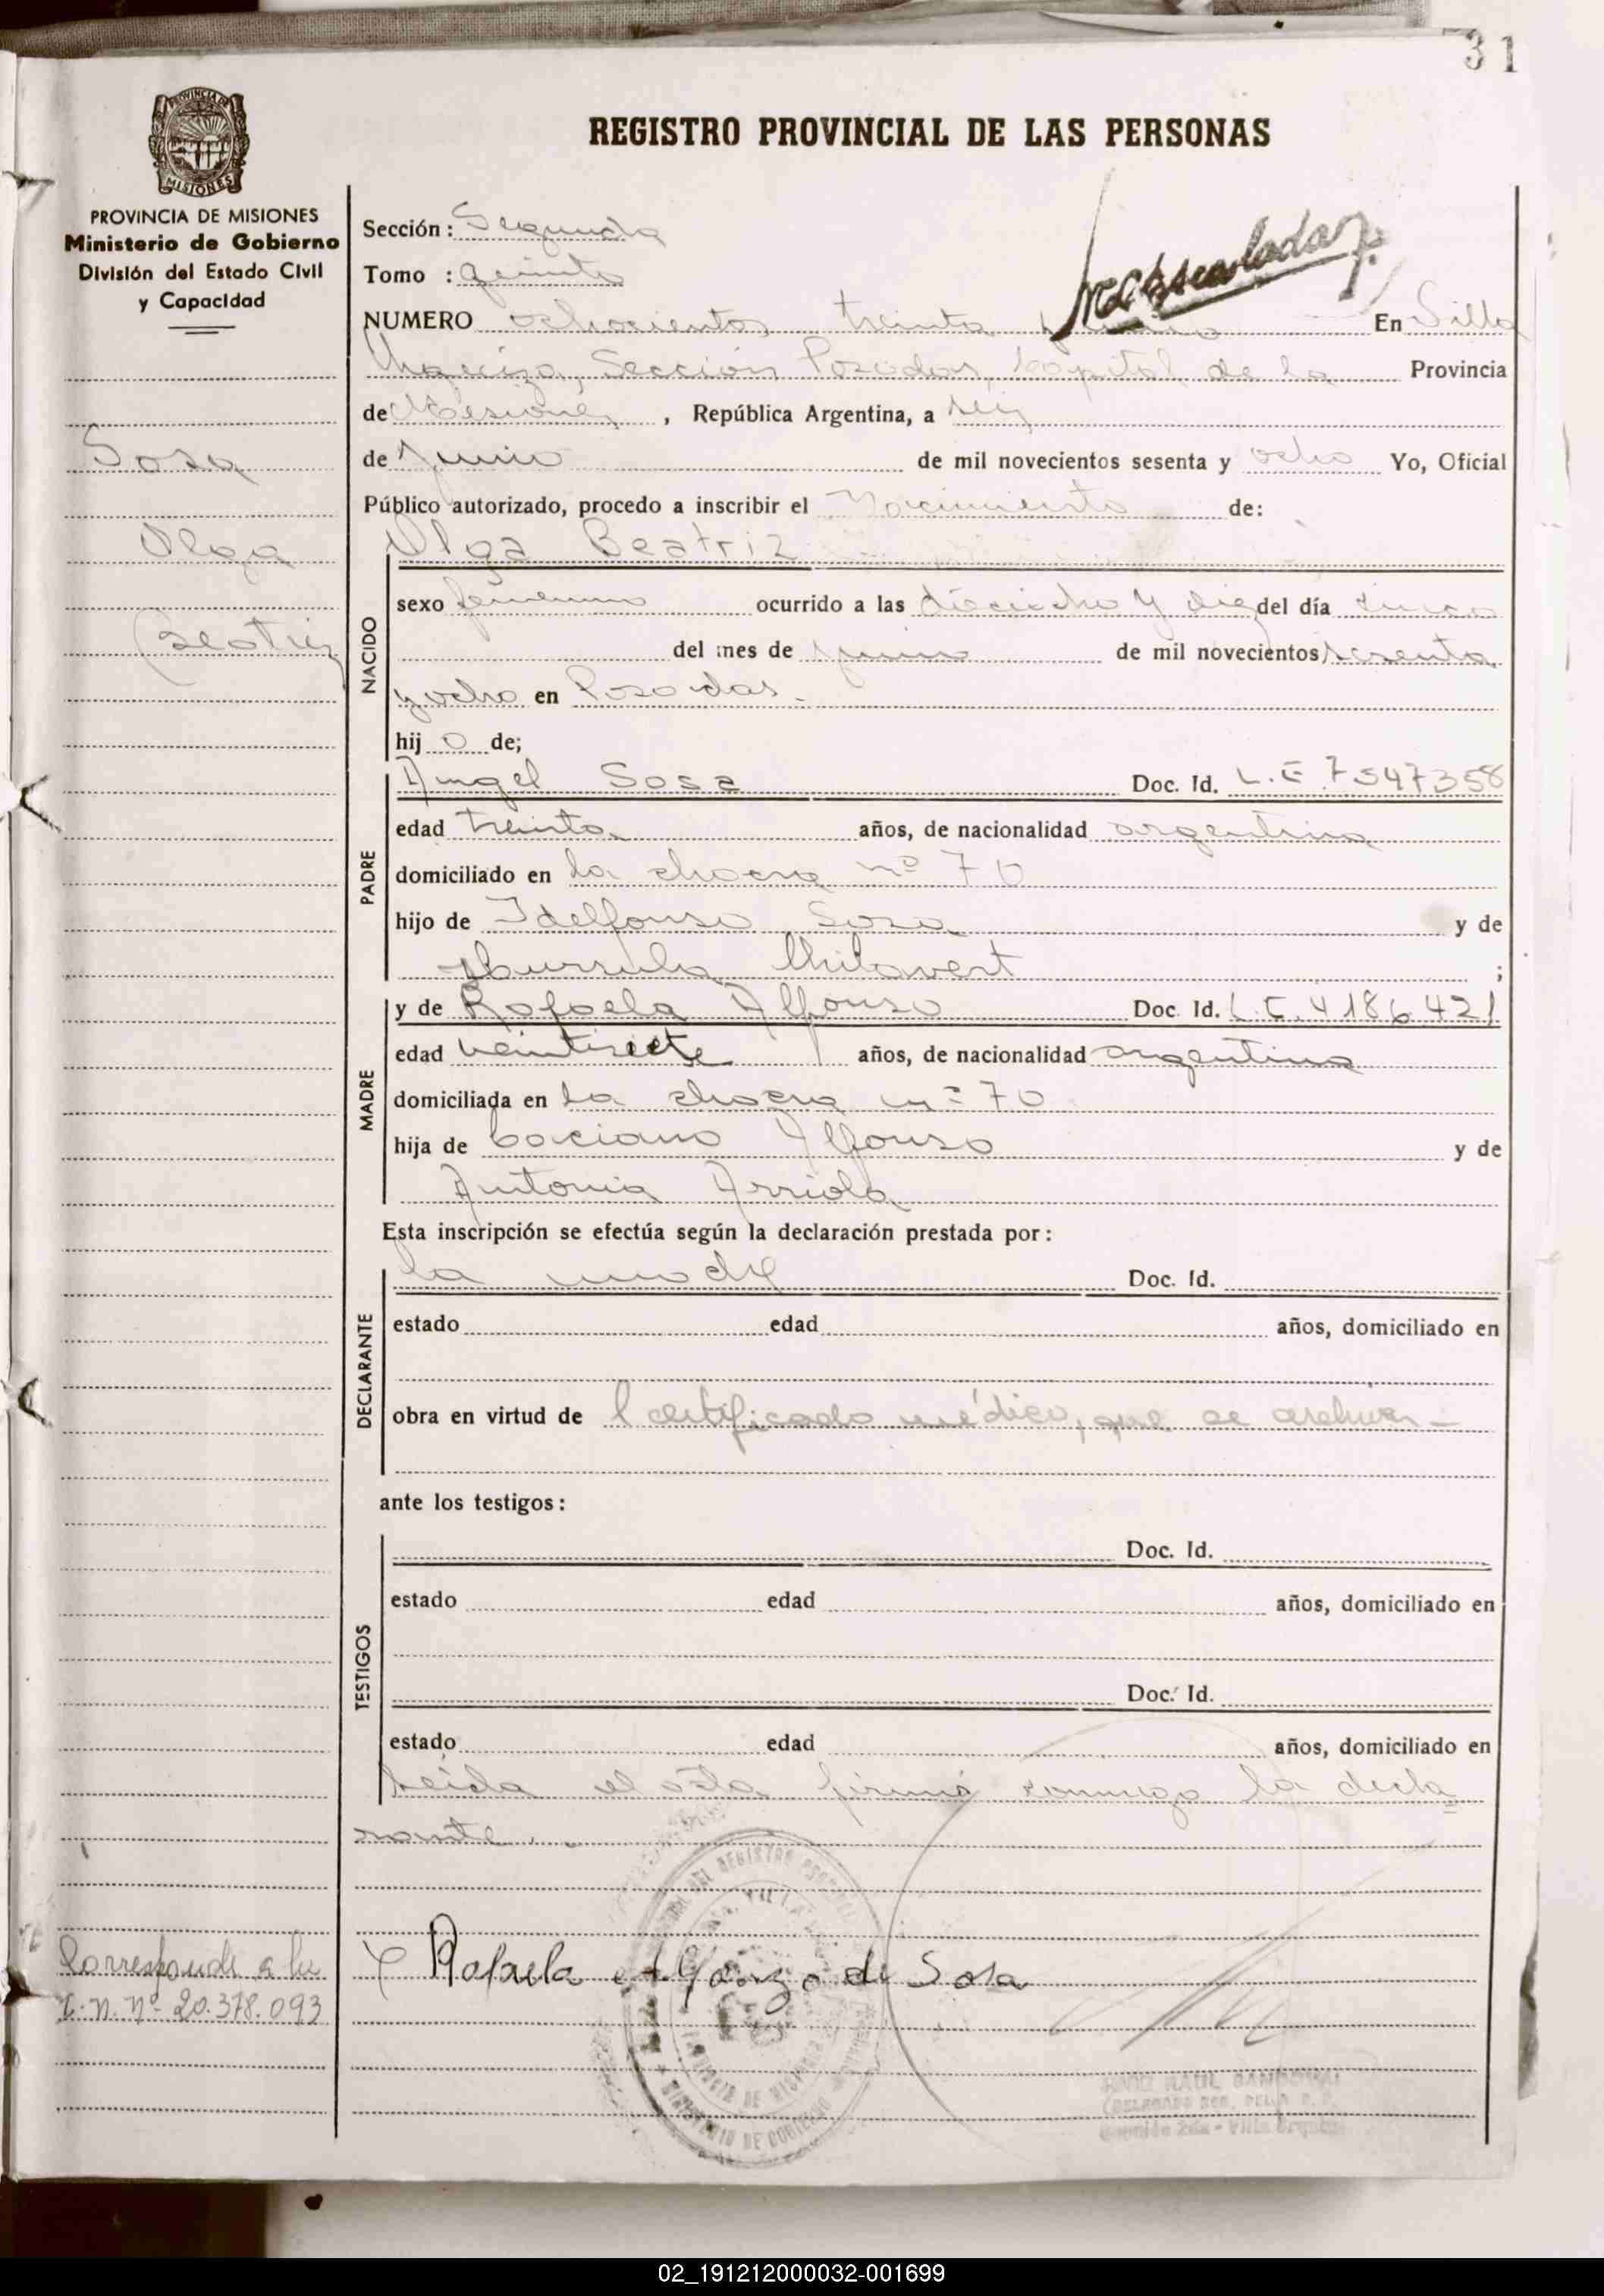 31
REGISTRO PROVINCIAL DE LAS PERSONAS
PROVINCIA DE MISIONES
MISIONES
PROVINCIA DE MISIONES
Ministerio de Gobierno
División del Estado Civil
y Capacidad
Sosa
Olga
Beatriz
Sección: Segunda
Tomo : quinto
NUMERO ochocientos treinta y En Villa
Urquiza, Sección Posadas, Capital de la Provincia
de Misiones, República Argentina, a seis
de Junio de mil novecientos sesenta y ocho Yo, Oficial
Público autorizado, procedo a inscribir el Nacimiento de:
NACIDO
Olga Beatriz
sexo femenino ocurrido a las dieciocho y diez del día cinco
del mes de junio de mil novecientos sesenta
y ocho en Posadas.-
hij o de;
PADRE
Angel Sosa Doc. Id. L.E 7547358
edad treinta años, de nacionalidad argentina
domiciliado en la chacra nº 70
hijo de Idelfonso Sosa y de
;
MADRE
y de Rafaela Alfonso Doc. Id. L.C. 4186421
edad veintisiete años, de nacionalidad argentina
domiciliada en La chacra nº 70
hija de Alfonso y de
Antonia Arriola
Esta inscripción se efectúa según la declaración prestada por:
DECLARANTE
la madre Doc. Id.
estado edad años, domiciliado en
obra en virtud de l certificado médico, que se archiva-
ante los testigos:
TESTIGOS
Doc. Id.
estado edad años, domiciliado en
Doc. Id.
estado edad años, domiciliado en
Leída el acta firma conmigo la decla
rante.
Corresponde a la
I.N.Nº 20.378.093
Rafaela Alfonzo de Sosa
MINISTERIO DE GOBIERNO
PROVINCIA DE MISIONES
RAUL
02_191212000032-001699